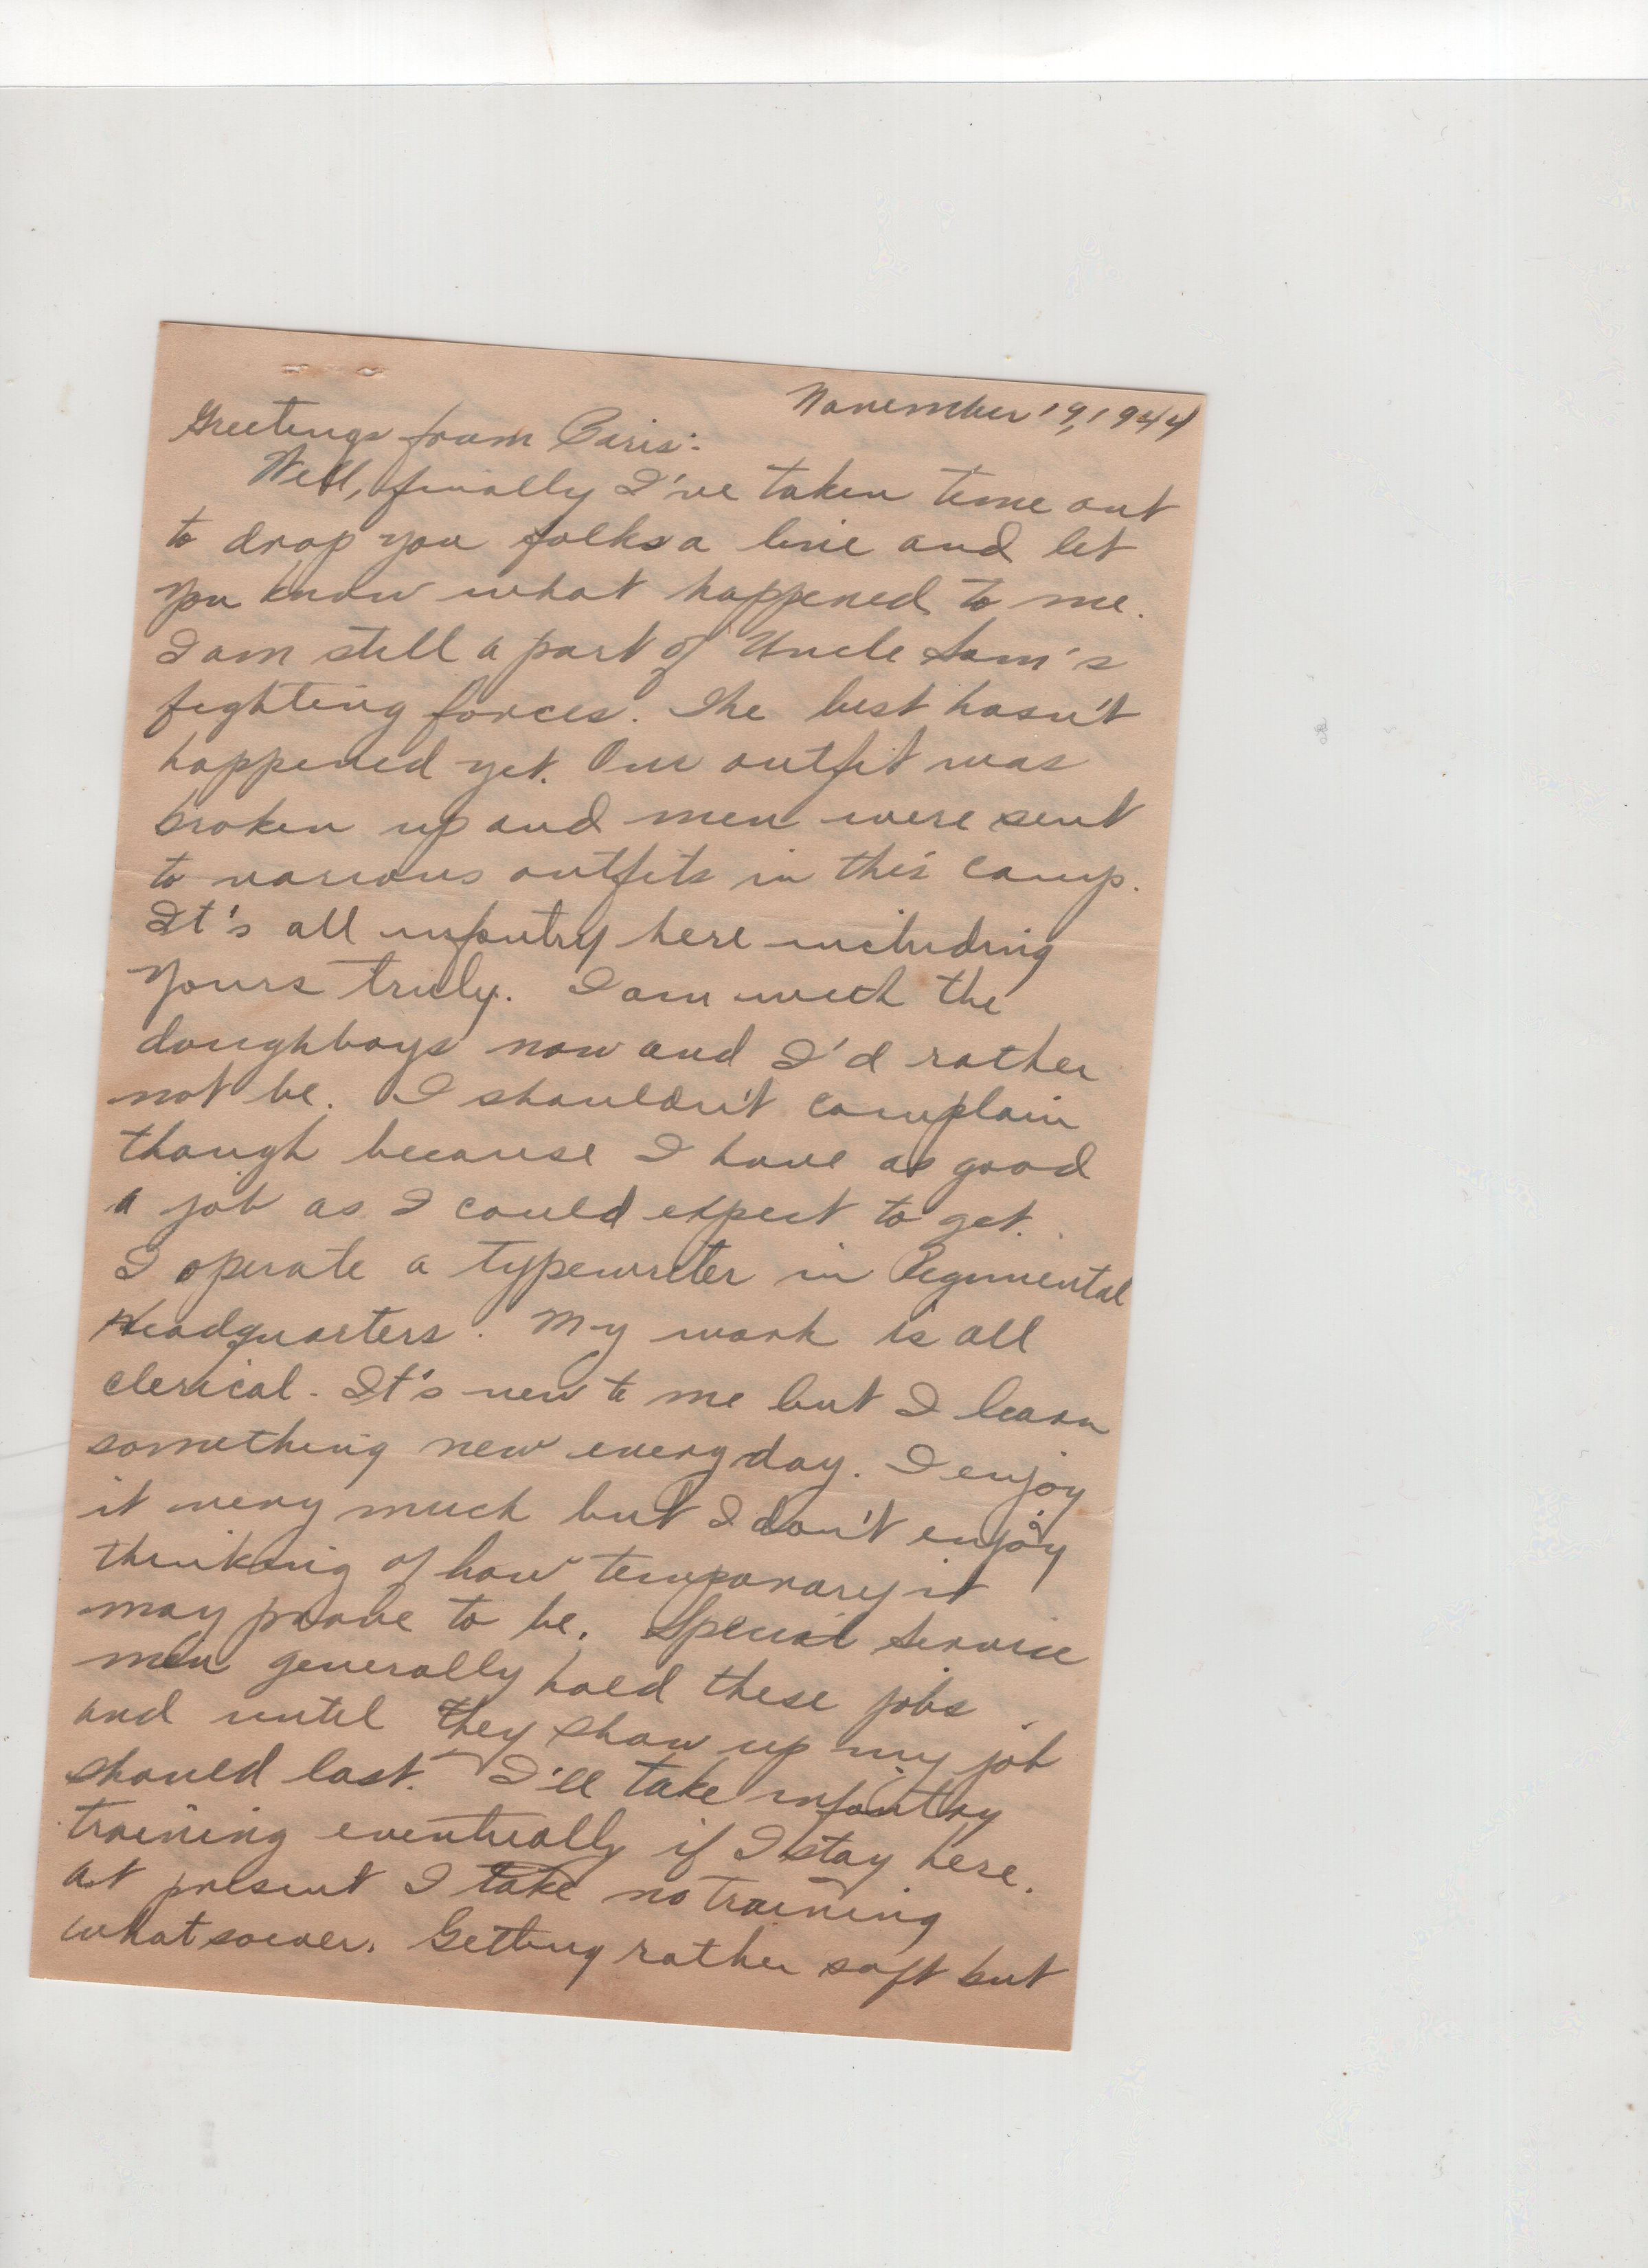 November 19, 1944
Greetings from Paris:
Well, finally I've taken time out
to drop you folks a line and let
you know what happened to me.
I am still a part of Uncle Sam's
fighting forces. The best hasn't
happened yet. Our outfit was
broken up and men were sent
to various outfits in this camp.
It's all infantry here including
yours truly. I am with the
doughboys now and I'd rather
not be. I shouldn't complain
though because I have as good
a job as I could expect to get.
I operate a typewriter in Regimental
Headquarters. My work is all
clerical. It's new to me but I learn
something new everyday. I enjoy
it very much but I don't enjoy
thinking of how temporary it
may prove to be. Special Service
men generally hold these jobs
and until they show up my job
should last. I'll take infantry
training eventually if I stay here.
At present I take no training
whatsoever. Getting rather soft but